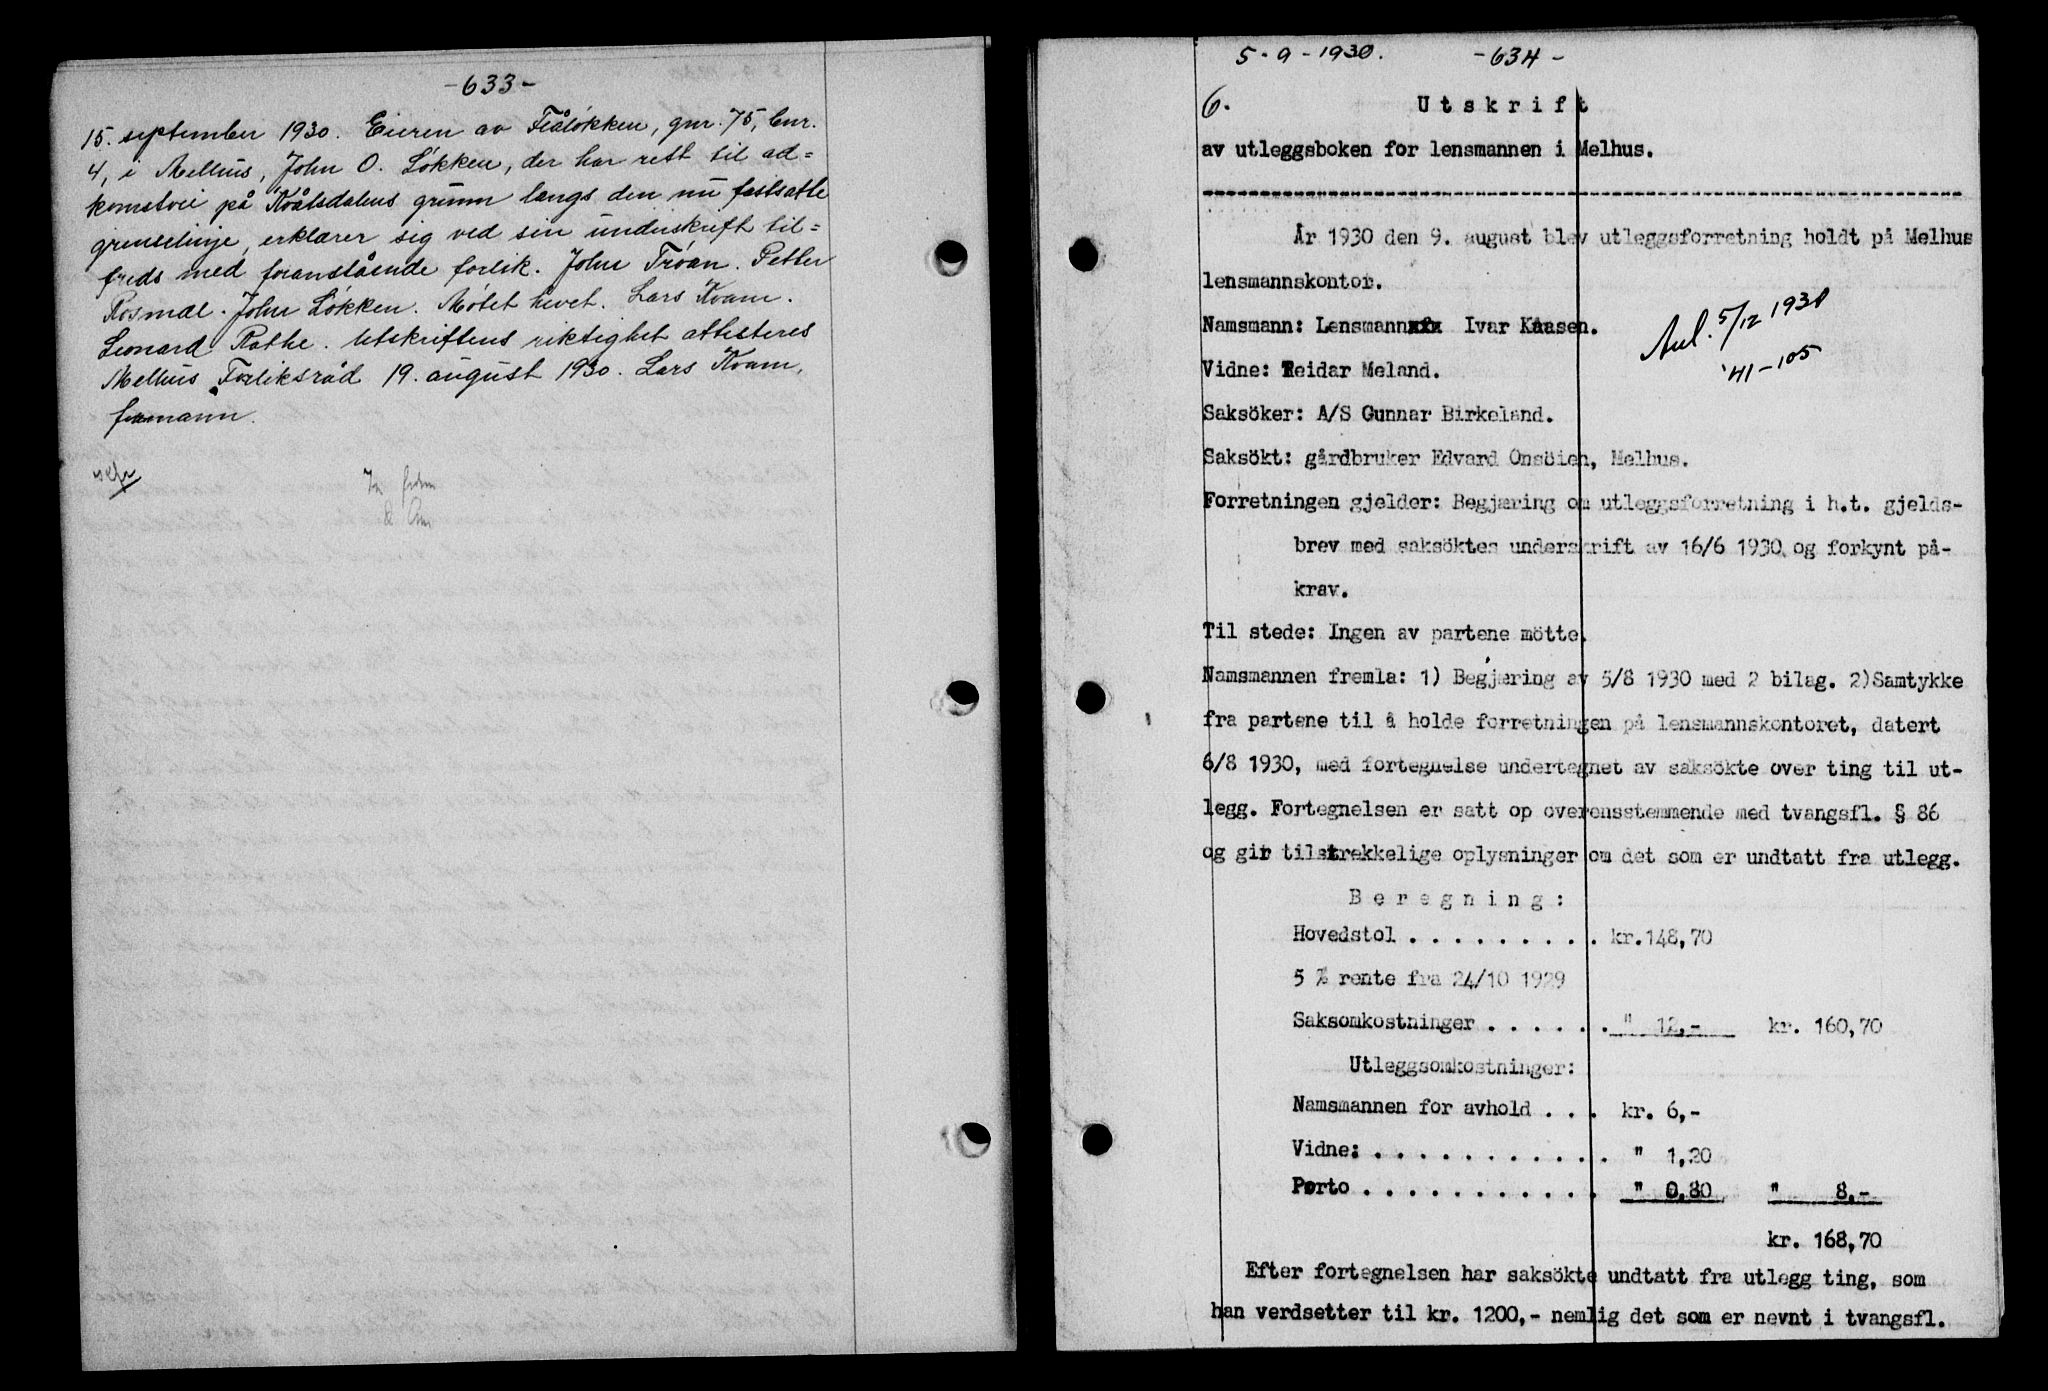 -633-
15. september 1930. Eieren av Flåløkken, gnr. 75, bnr.
4, i Melhus, John O. Løkken, der har rett til ad=
komstvei på Kvålsdalens grunn langs den nu fastsatte
grenselinje, erklærer sig ved sin underskrift til=
freds med foranstående forlik. John Trøan. Petter
Rosmæl. John Løkken. Møtet hevet. Lars Kvam.
Leonard Rathe. Utskriftens riktighet attesteres
Melhus Forliksråd 19. august 1930. Lars Kvam,
formann.
5-9-1930. -634-
6. Utskrift
av utleggsboken for lensmannen i Melhus.
År 1930 den 9. august blev utleggsforretning holdt på Melhus
lensmannskontor.
Namsmann: Lensmann Ivar Kaasen.
Avl. 5/12 1930
'41-105
Vidne: Reidar Meland.
Saksöker: A/S Gunnar Birkeland.
Saksökt: gårdbruker Edvard Onsöien, Melhus.
Forretningen gjelder: Begjæring om utleggsforretning i h.t. gjelds-
brev med saksöktes underskrift av 16/6 1930 og forkynt på-
krav.
Til stede: Ingen av partene mötte.
Namsmannen fremla: 1) Begjæring av 5/8 1930 med 2 bilag. 2)Samtykke
fra partene til å holde forretningen på lensmannskontoret, datert
6/8 1930, med fortegnelse undertegnet av saksökte over ting til ut-
legg. Fortegnelsen er satt op overensstemmende med tvangsfl. § 86
og gir tilstrekkelige oplysninger om det som er undtatt fra utlegg.
Beregning:
Hovedstol . . . . . . . . . . kr.148,70
5 % rente fra 24/10 1929
Saksomkostninger . . . . . . " 12,- kr. 160,70
Utleggsomkostninger:
Namsmannen for avhold . . . kr. 6,-
Vidne: . . . . . . . . . . . . " 1,20
Porto . . . . . . . . . . . . " 0,80 " 8,-
kr. 168,70
Efter fortegnelsen har saksökte undtatt fra utlegg ting, som
han verdsetter til kr. 1200,- nemlig det som er nevnt i tvangsfl.